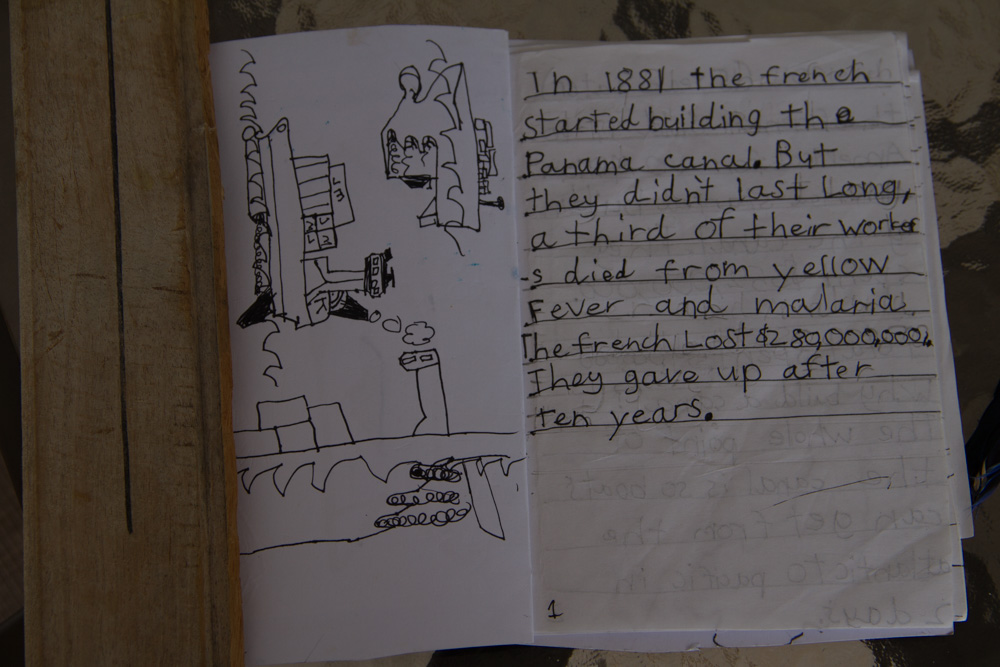 In 1881 the french
started building the
Panama canal. But
they didn't last Long,
a third of their worker
-s died from yellow
Fever and malaria.
The french Lost $289,000,000,.
They gave up after
ten years.
1